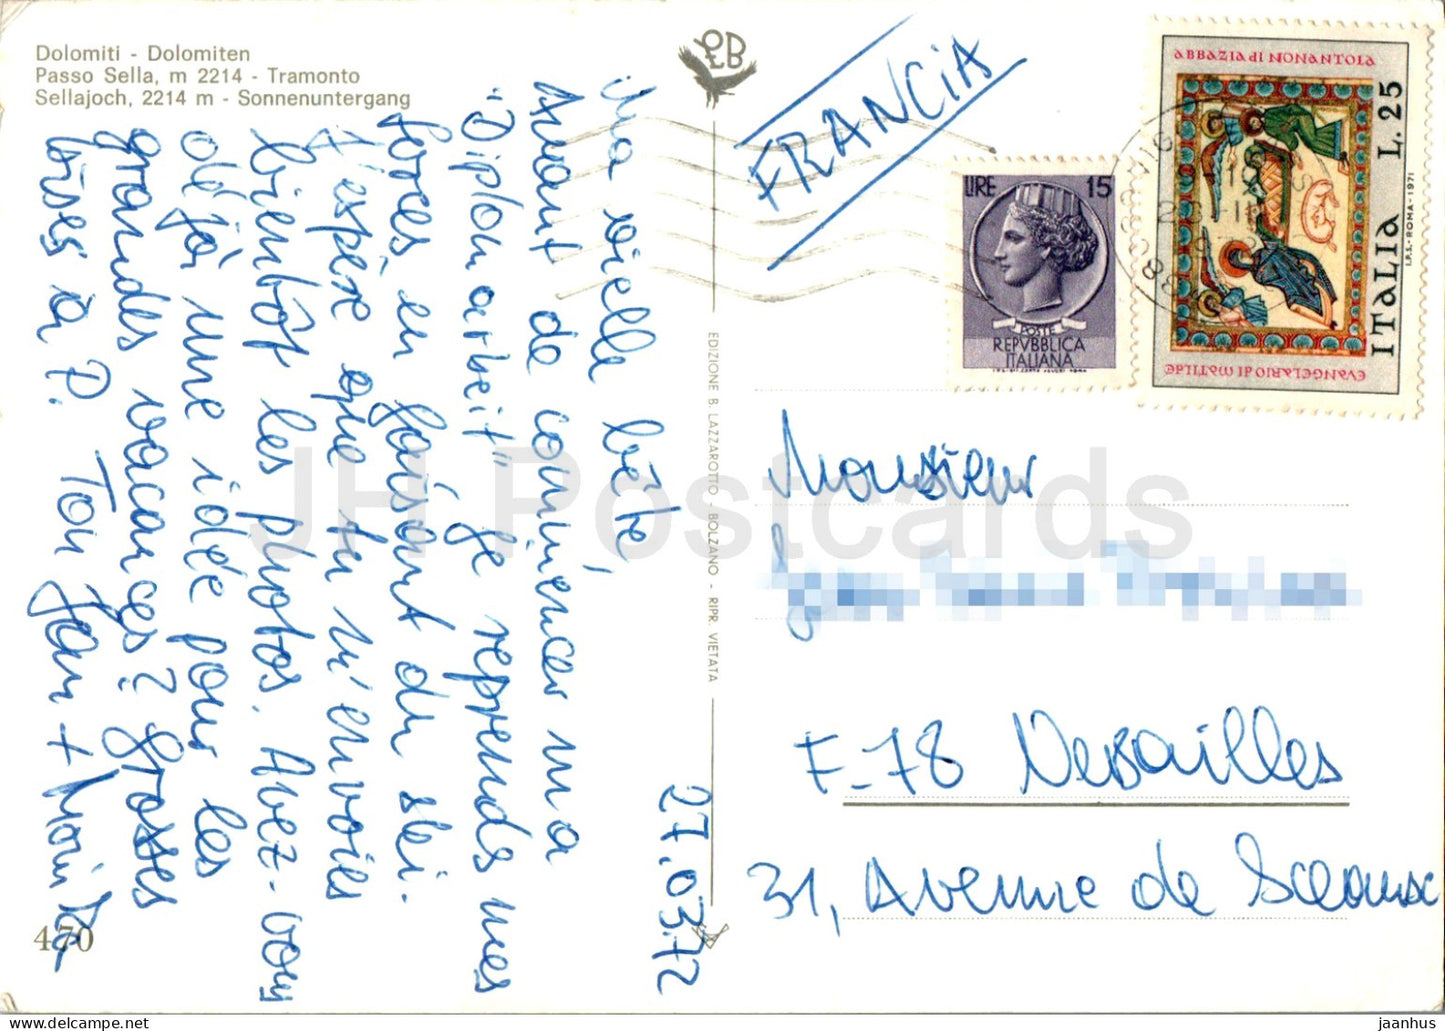 Dolomiti - Dolomiten
Passo Sella, m 2214 - Tramonto
Sellajoch, 2214 m - Sonnenuntergang
27.03.72
Ma vieille bête,
Avant de commencer ma
"Diplomarbeit" je reprends mes
forces en faisant du ski.
J'espère que tu m'envoies
bientôt les photos. Avez-vous
déjà une idée pour les
grandes vacances? Grosses
bises à P. Ton Jan +
470
EDIZIONE B. LAZZAROTTO - BOLZANO - RIPR. VIETATA
B
FRANCIA
LIRE 15
POSTE
REPVBBLICA
ITALIANA
ABBAZIA di NONANTOLA
EVANGELARIO di MATILDE
ITALIA L. 25
I.P.S.-ROMA-1971
Monsieur
F-78 Versailles
31, Avenue de Sceaux
JH Postcards
delcampe.net
jaanhus